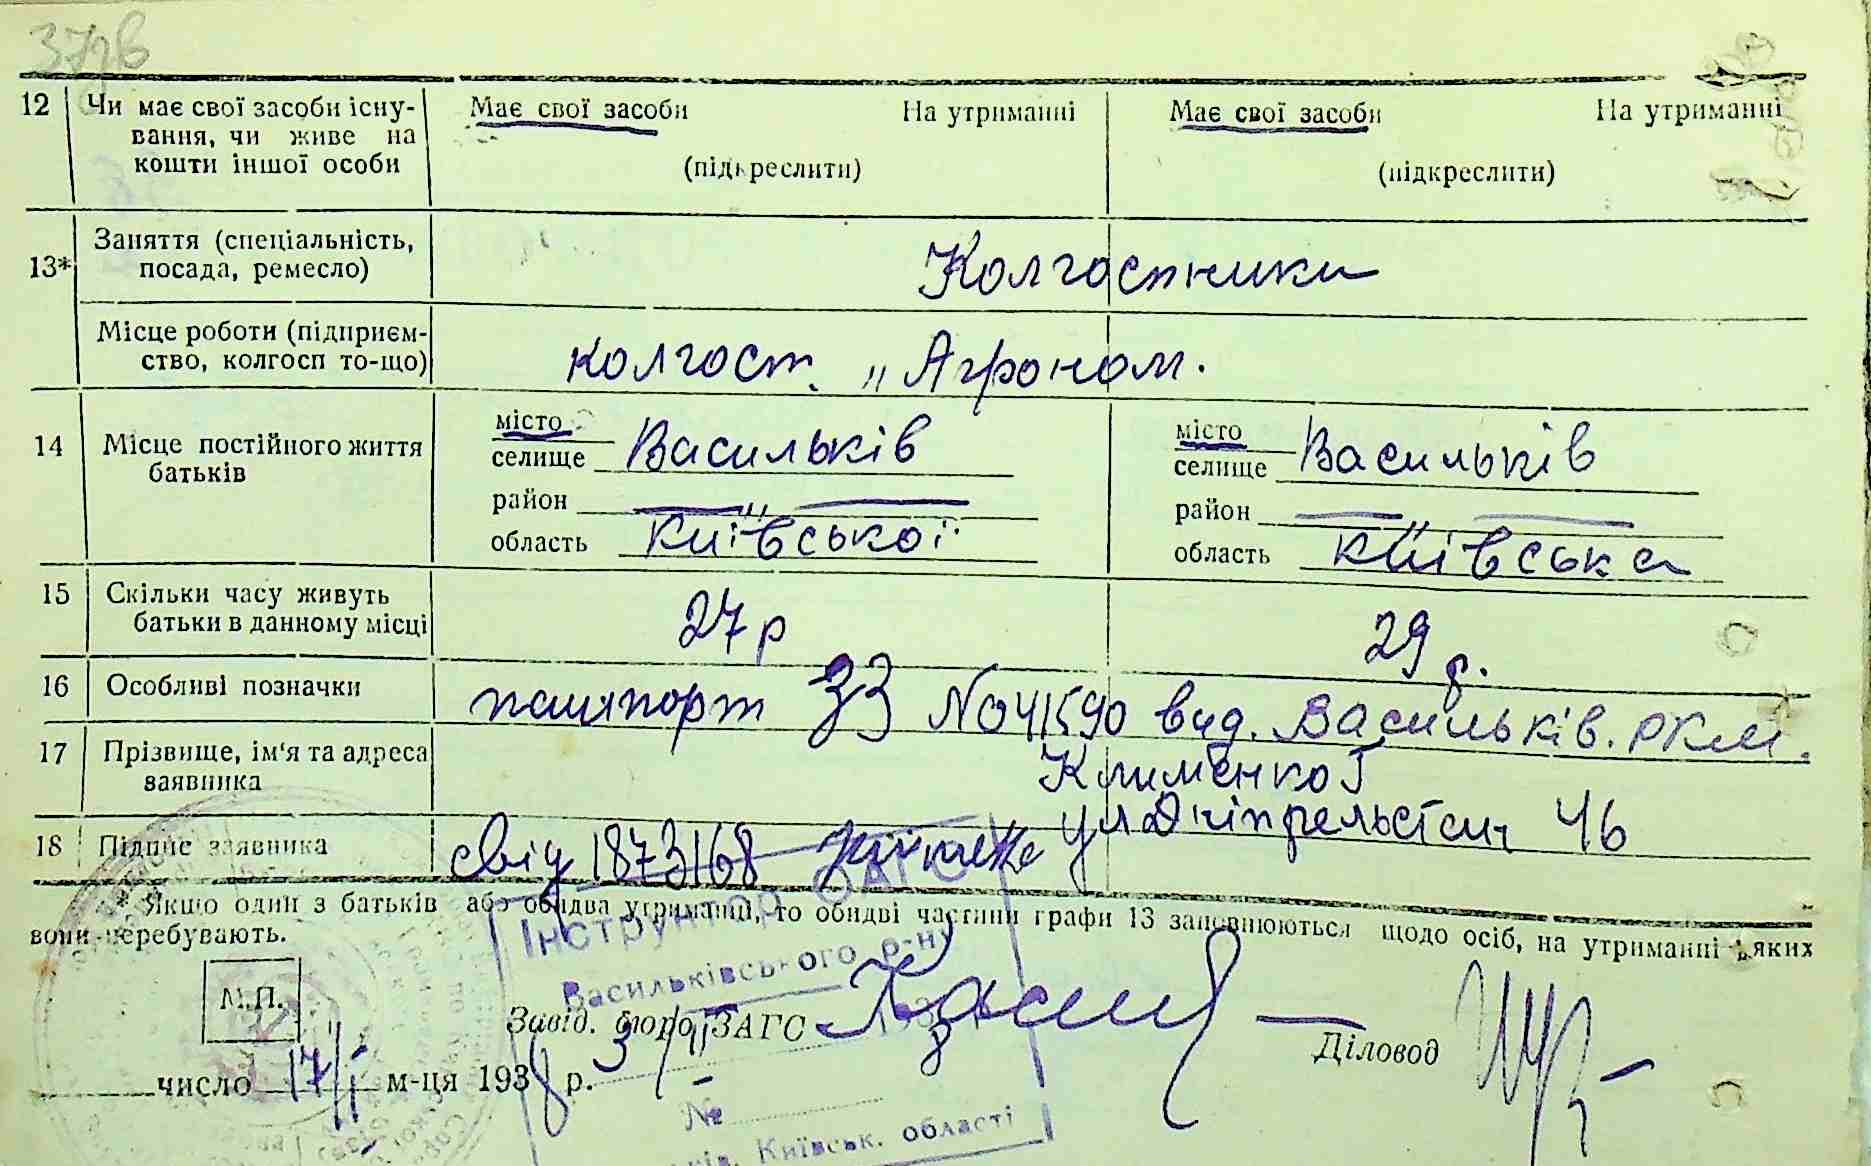 12 Чи має свої засоби існу- Має свої засоби На утриманні Має свої засоби На утриманні
вання, чи живе на
кошти іншої особи (підкреслити) (підкреслити)
13* Заняття (спеціальність,
посада, ремесло) Колгоспники
Місце роботи (підприєм-
ство, колгосп то-що) колгосп. „Агроном.
14 Місце постійного життя
батьків
місто
селище Васильків
район — „ —
область Київської
місто
селище Васильків
район — „ —
область Київська
15 Скільки часу живуть
батьки в данному місці 27 р 29 р.
16 Особливі позначки пашпорт ЗЗ № 041590 вид. Васильків. РКМ.
17 Прізвище, ім'я та адреса
заявника Клименко Г
ул 46
18 Підпис заявника свід 1873168
* Якщо один з батьків або обидва утриманці, то обидві частини графи 13 заповнюються щодо осіб, на утриманні яких
вони перебувають.
Інструктор ЗАГС
Васильківського р-ну
М.П.
Завід. бюро ЗАГС
Діловод
число 17/І м-ця 1938 р.
№
Київськ. області